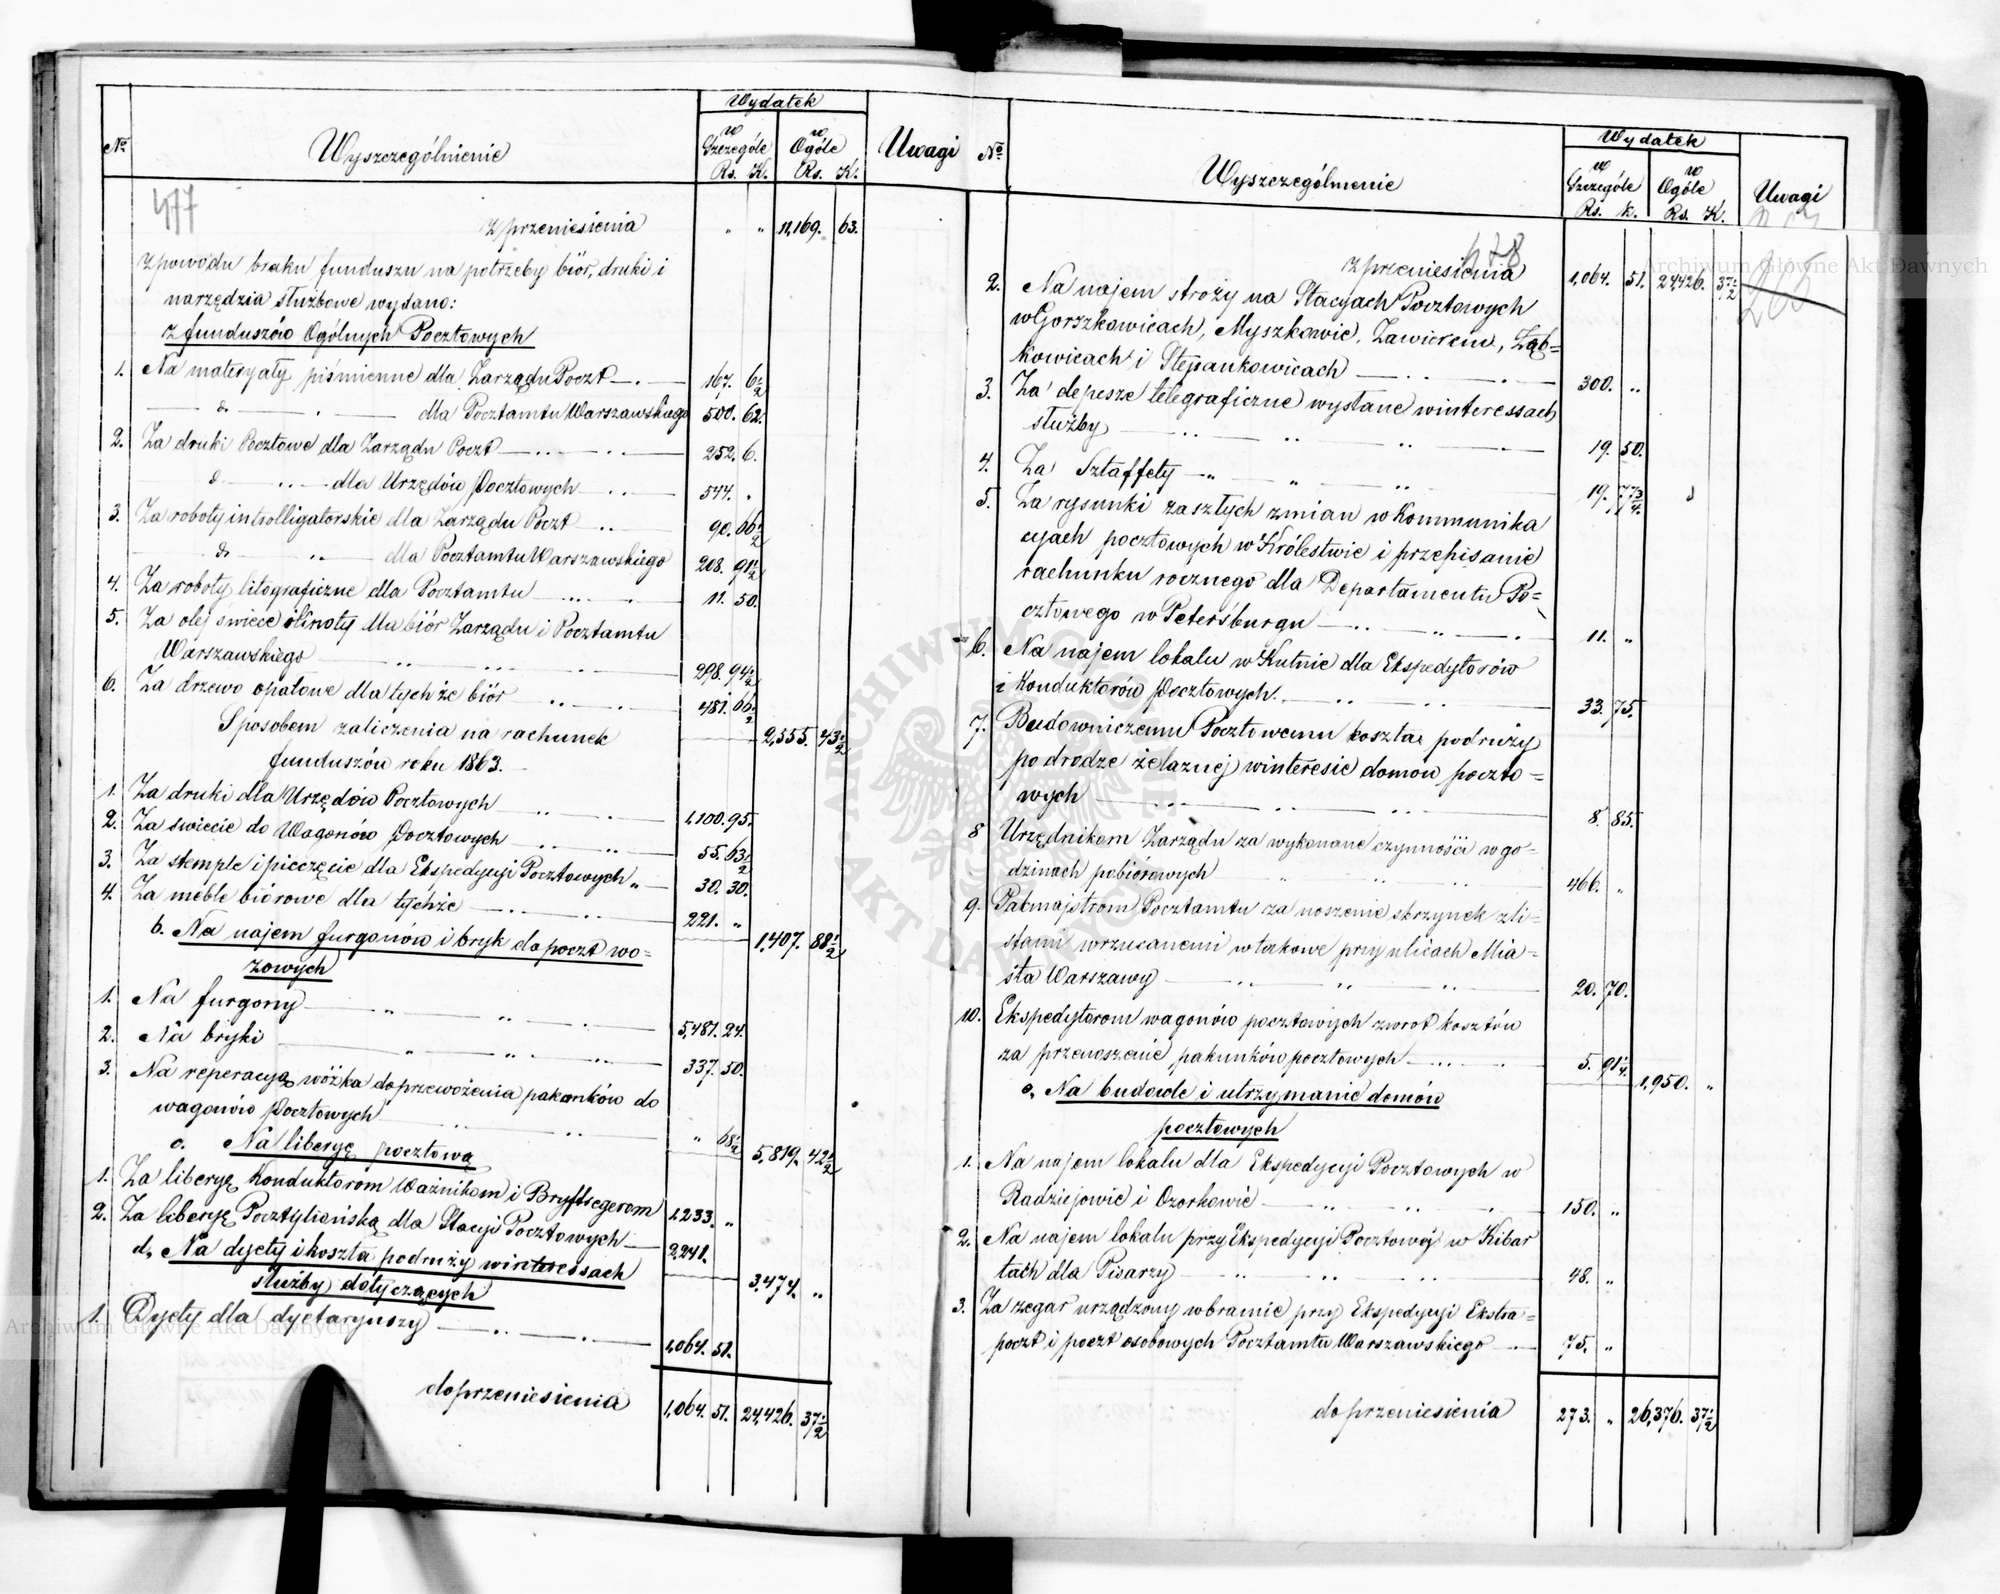 477
№ Wyszczególnienie Wydatek Uwagi
w Szczególe w Ogóle
Rs. K. Rs. K.
z przeniesienia " " 11,169. 63.
z powodu braku funduszu na potrzeby biór, druki i
narzędzia służbowe wydano:
z funduszów Ogólnych Pocztowych
1. Na materyały piśmienne dla Zarządu Poczt 167. 6 1/2
do dla Pocztamtu Warszawskiego 500. 62.
2. Za druki Pocztowe dla Zarządu Poczt 252. 6.
do dla Urzędów Pocztowych 544. "
3. Za roboty introlligatorskie dla Zarządu Poczt 90. 66 1/2
do dla Pocztamtu Warszawskiego 208. 91 1/2
4. Za roboty litograficzne dla Pocztamtu 11. 50.
5. Za olej świece i knoty dla biór Zarządu i Pocztamtu
Warszawskiego 298. 94 1/2
6. Za drzewo opałowe dla tychże biór 481. 66 1/2
2,555. 43 1/2
Sposobem zaliczenia na rachunek
funduszów roku 1863.
1. Za druki dla Urzędów Pocztowych 1,100. 95.
2. Za świece do Wagonów Pocztowych 55. 63 1/2
3. Za stemple i pieczęcie dla Ekspedycyi Pocztowych " 30. 30.
4. Za meble biórowe dla tychże 221. "
1,407. 88 1/2
b. Na najem furgonów i bryk do poczt wo=
zowych
1. Na furgony 5,481. 24.
2. Na bryki 337. 50.
3. Na reperacyą wózka do przewożenia pakunków do
wagonów Pocztowych " 68 1/2
5,819. 42 1/2
c. Na liberyę pocztową
1. Za liberyę Konduktorom Ważnikom i Bryftregerom 1,233. "
2. Za liberyę Pocztyliońską dla Stacyi Pocztowych 2,241.
3,474. "
d. Na dyety i koszta podróży w interessach
służby dotyczących
1. Dyety dla dyetaryuszy 1,064. 51.
do przeniesienia 1,064. 51. 24,426. 37 1/2
478
№ Wyszczególnienie Wydatek Uwagi
w Szczególe w Ogóle
Rs. K. Rs. K.
265
z przeniesienia 1,064. 51. 24,426. 37 1/2
2. Na najem stróży na Stacyach Pocztowych
w Gorszkowicach, Myszkowie, Zawierciu, Ząb=
kowicach i Stepankowicach 300. "
3. Za depesze telegraficzne wysłane w interessach
służby 19. 50.
4. Za Sztaffety 19. 77 3/4.
5. Za rysunki zaszłych zmian w Kommunika
cyach pocztowych w Królestwie i przepisanie
rachunku rocznego dla Departamentu Po=
cztowego w Petersburgu 11. "
6. Na najem lokalu w Kutnie dla Ekspedytorów
i Konduktorów Pocztowych. 33. 75.
7. Budowniczemu Pocztowemu koszta podróży
po drodze żelaznej w interesie domów poczto=
wych 8. 85.
8 Urzędnikom Zarządu za wykonane czynności w go=
dzinach pobiórowych 466. "
9. Pakmajstrom Pocztamtu za noszenie skrzynek z li=
stami wrzucanemi w takowe przy ulicach Mia=
sta Warszawy 20. 70.
10. Ekspedytorom wagonów pocztowych zwrot kosztów
za przenoszenie pakunków pocztowych 5. 91 1/4.
1,950. "
e. Na budowle i utrzymanie domów
pocztowych
1. Na najem lokalu dla Ekspedycyi Pocztowych w
Radziejowie i Ozorkowie 150. "
2. Na najem lokalu przy Ekspedycyi Pocztowej w Kibar
tach dla Pisarzy 48. "
3. Za zegar urządzony w bramie przy Ekspedycyi Ekstra=
poczt i poczt osobowych Pocztamtu Warszawskiego 75. "
do przeniesienia 273. " 26,376. 37 1/2
Archiwum Główne Akt Dawnych
Archiwum Główne Akt Dawnych